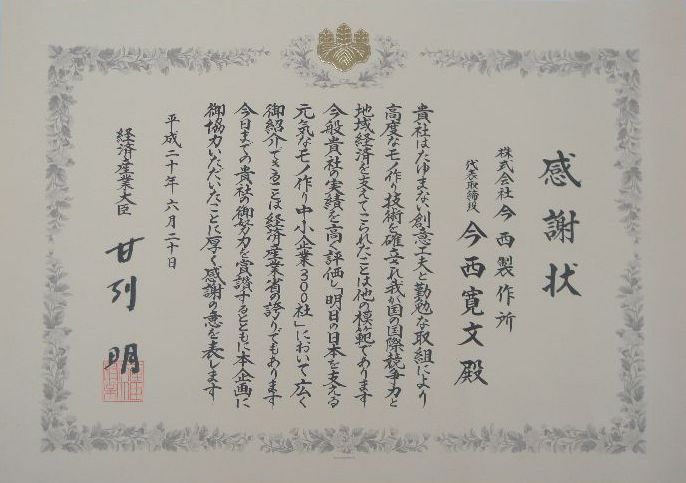 感謝状
株式会社 今西製作所
代表取締役 今西寛文殿
貴社はたゆまない創意工夫と勤勉な取組により
高度なモノ作り技術を確立され我が国の国際競争力と
地域経済を支えてこられたことは他の模範であります
今般貴社の実績を高く評価し「明日の日本を支える
元気なモノ作り中小企業300社」において広く
御紹介できることは経済産業省の誇りでもあります
今日までの貴社の御努力を賞讃するとともに本企画に
御協力いただいたことに厚く感謝の意を表します
平成二十年六月二十日
経済産業大臣 甘利 明